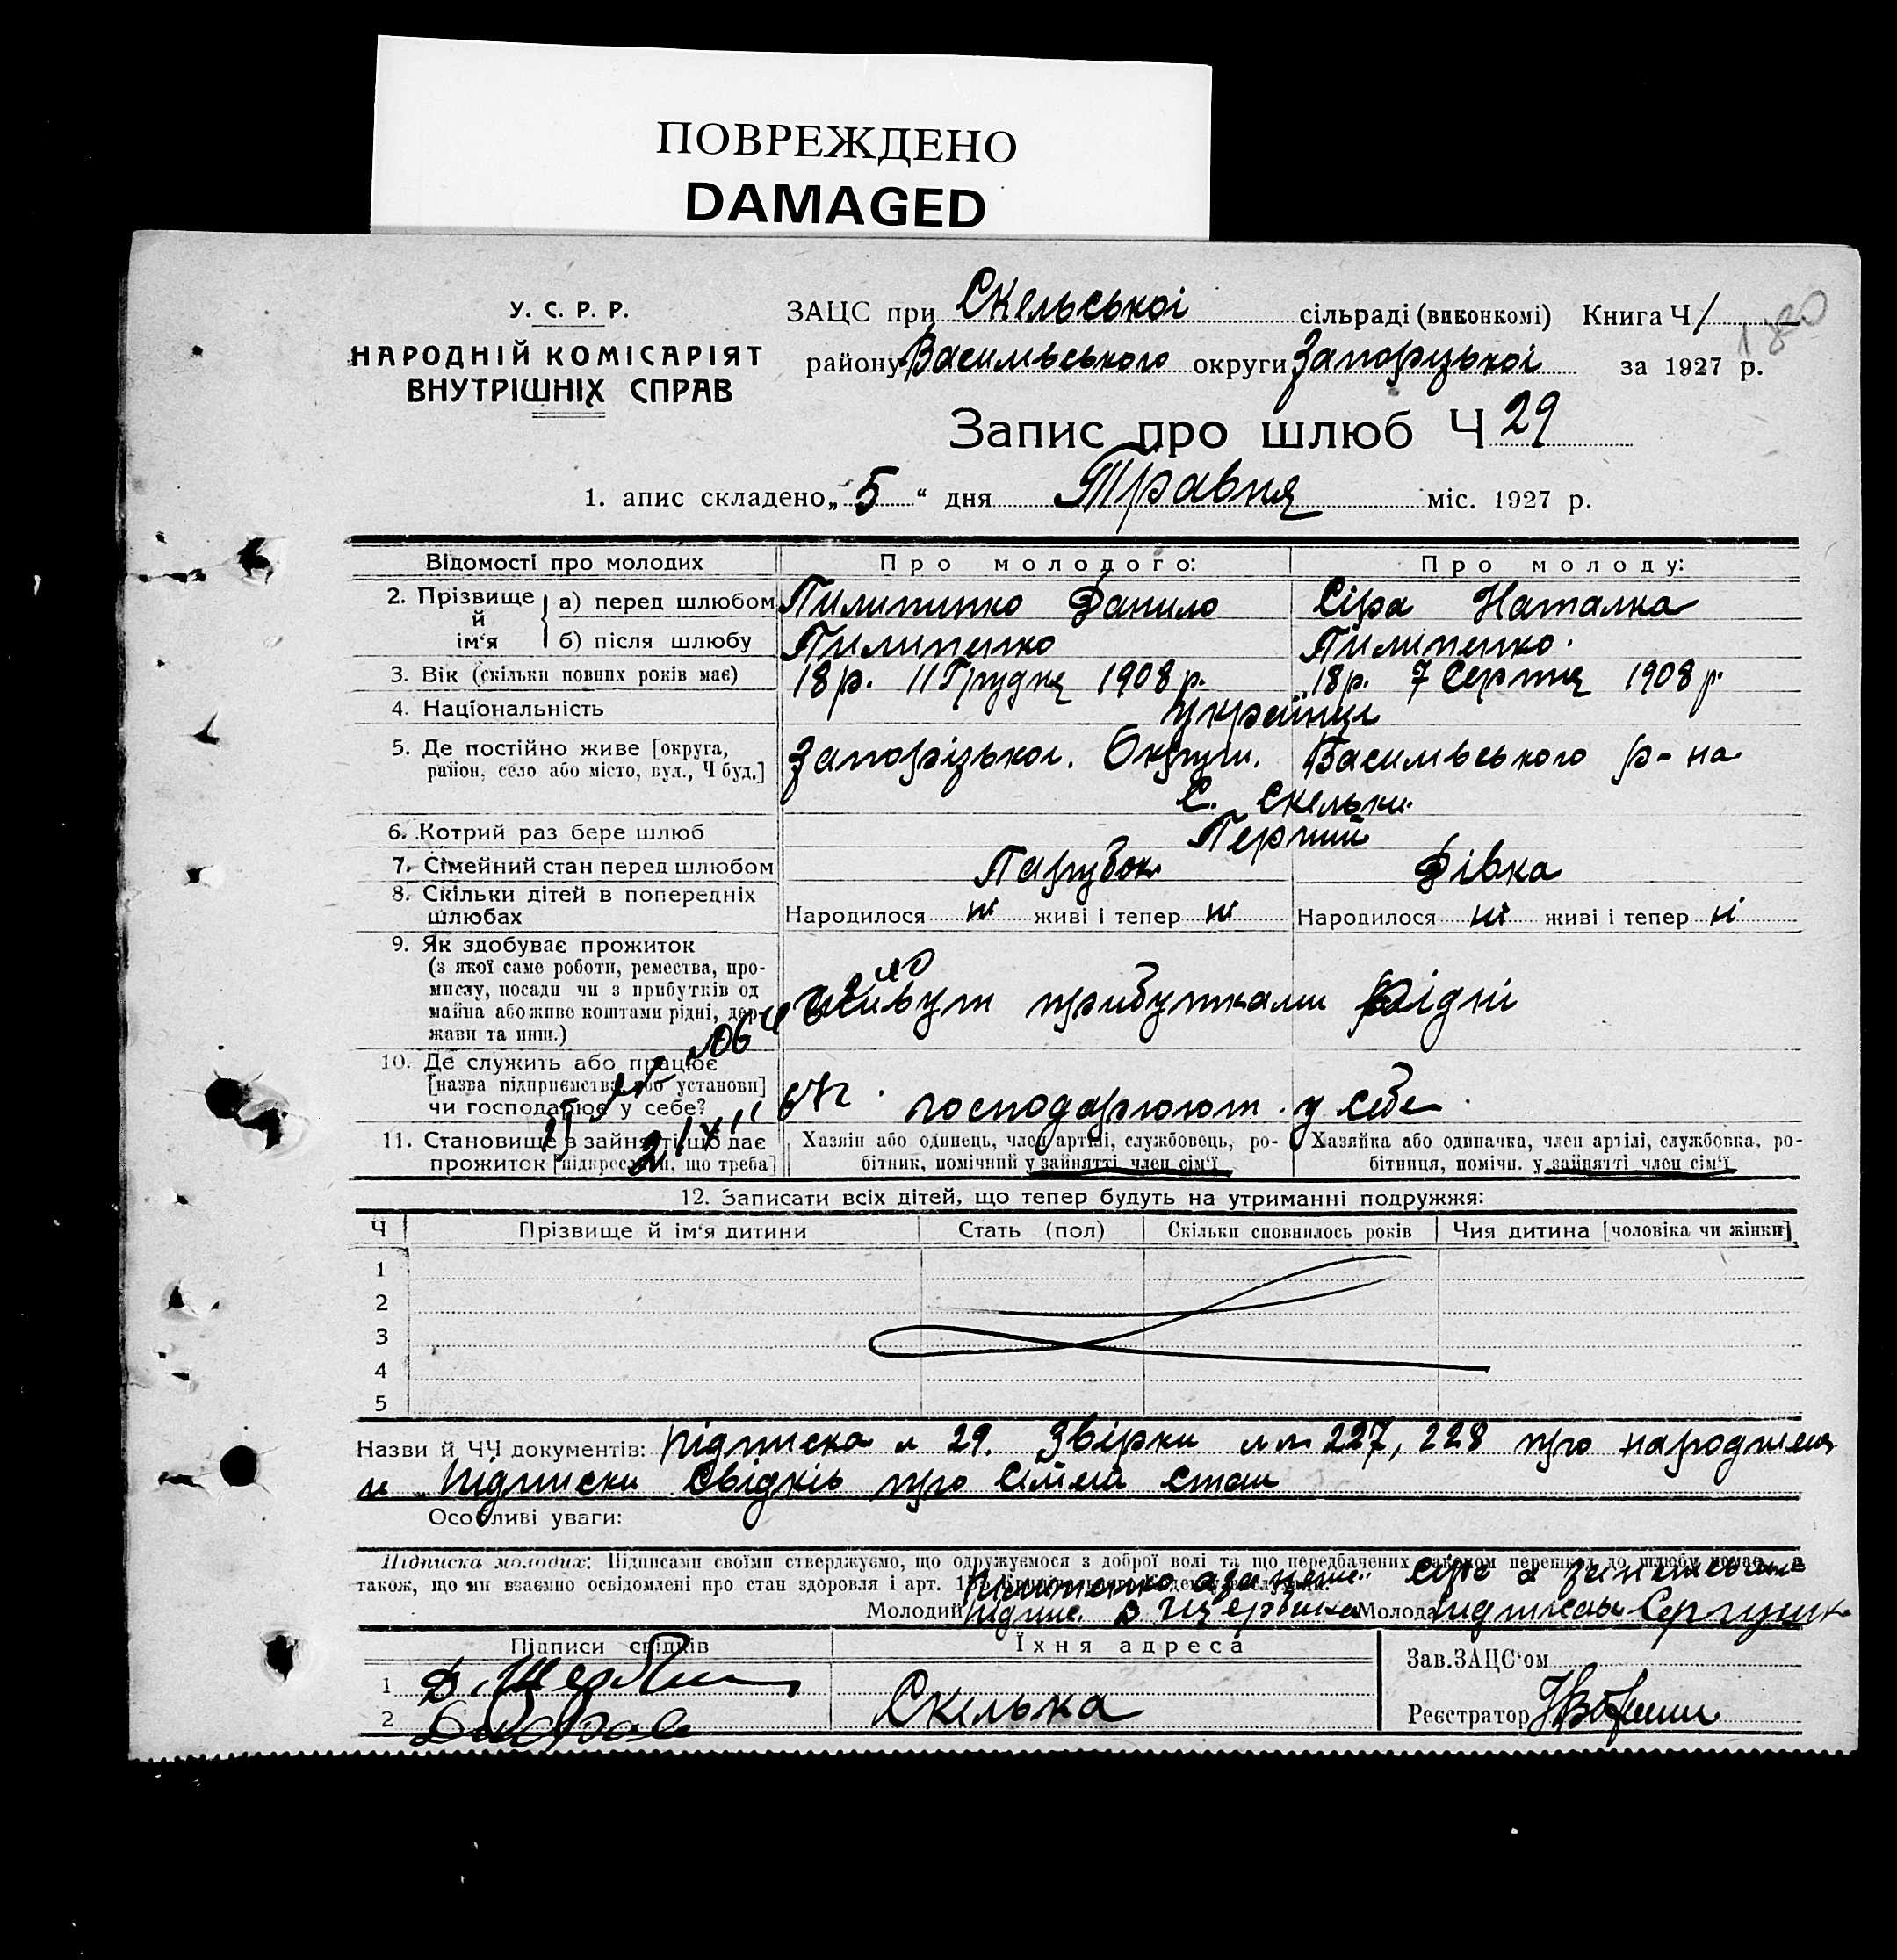 ПОВРЕЖДЕНО
DAMAGED
У. С. Р. Р.
НАРОДНІЙ КОМІСАРІЯТ
ВНУТРІШНІХ СПРАВ
ЗАЦС при Скельської сільраді (виконкомі) Книга Ч 1
району Васильвського округи Запорізької за 1927 р.
Запис про шлюб Ч 29
1. апис складено „ 5 “ дня Травня міс. 1927 р.
Відомості про молодих Про молодого: Про молоду:
2. Прізвище й ім‘я а) перед шлюбом Пилипенко Данило Сіра Наталка
б) після шлюбу Пилипенко Пилипенко.
3. Вік (скільки повних років має) 18 р. 11 Грудня 1908 р. 18 р. 7 Серпня 1908 р.
4. Національність українці
5. Де постійно живе [округа, Запорізької. Округи. Васильвського р-на
район, село або місто, вул., Ч буд.]
С. Скельки.
6. Котрий раз бере шлюб Перший
7. Сімейний стан перед шлюбом Парубок Дівка
8. Скільки дітей в попередніх
шлюбах Народилося ні живі і тепер ні Народилося ні живі і тепер ні
9. Як здобуває прожиток
(з якої саме роботи, ремества, про-
мислу, посади чи з прибутків од живут прибутками рідні
майна або живе коштами рідні, дер-
жави та инш.)
10. Де служить або працює
[назва підприємства або установи] господарюют у себе.
чи господарює у себе?
11. Становище в зайнятті що дає Хазяїн або одинець, член артілі, службовець, ро- Хазяйка або одиначка, член артілі, службовка, ро-
прожиток [підкреслити, що треба] бітник, помічний у зайнятті член сім‘ї бітниця, помічн. у зайнятті член сім‘ї
12. Записати всіх дітей, що тепер будуть на утриманні подружжя:
Ч Прізвище й ім‘я дитини Стать (пол) Скільки сповнилось років Чия дитина [чоловіка чи жінки]
1
2
3
4
5
Назви й ЧЧ документів: підписка 29. Звірки 227, 228 про народження
и підписки свідків про сімей стан
Особливі уваги:
Підписка молодих: Підписами своїми стверджуємо, що одружуємося з доброї волі та що передбачених законом перешкод до шлюбу немає, а
також, що ми взаємно освідомлені про стан здоровля і арт.
Молодий Молода
Підписи свідків Їхня адреса Зав.ЗАЦС‘ом
1
2 Скелька Реєстратор